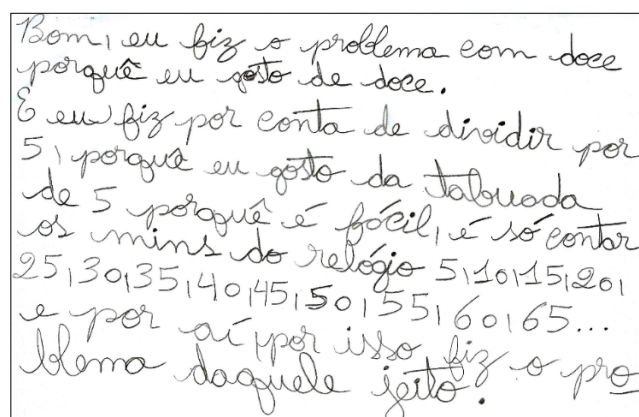 Bom, eu fiz o problema com doce
porquê eu gosto de doce.
E eu fiz por conta de dividir por
5, porquê eu gosto da tabuada
de 5 porquê é fácil, é só contar
os mins do relógio 5,10,15,20,
25,30,35,40,45,50,55,60,65...
e por aí, por isso fiz o pro
blema daquele jeito.